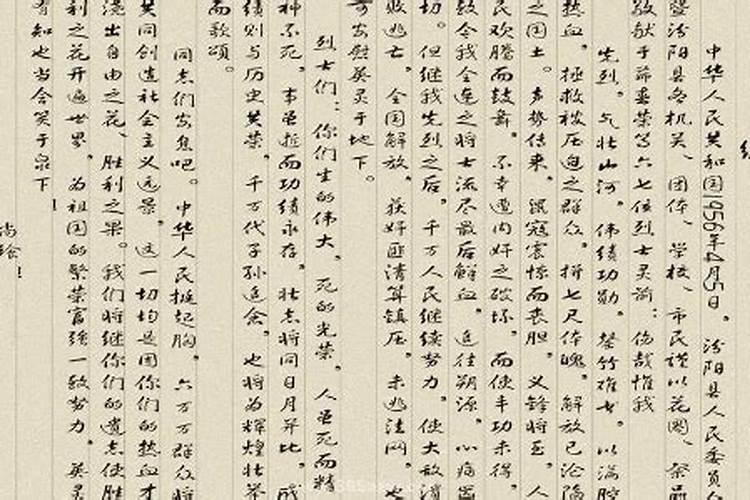 中华人民共和国1956年4月5日。汾阳县人民委员
暨汾阳县各机关、团体、学校、市民谨以花圈、祭品
敬献于茆垂荣等六七位烈士灵前：伤哉惟我
先烈。气壮山河。伟绩功勋。罄竹难书。以满腔
热血。拯救被压迫之群众。拼七尺体魄。解放已沦陷
之国土。声势传来。混寇震惊而丧胆。义锋将至。人
民欢腾而鼓舞。不幸遭内奸之破坏。而使丰功未得。
致令我全连之将士流尽最后鲜血。追往朔源。心痛
切。但继我先烈之后。千万人民继续努力。使大敌
败逃亡。全国解放。获奸匪清算镇压。未逃法网。
当慰英灵于地下。
烈士们：你们生的伟大。死的光荣。人虽死而精
神不死。事虽逝而功绩永存。壮志将同日月并比。
绩则与历史共荣。千万代子孙追念。也将为辉煌壮举
而歌颂。
同志们安息吧。中华人民挺起胸。六万万群众将
共同创造社会主义远景。这一切均是因你们的热血才
浇出自由之花、胜利之果。我们将继你们的遗志使胜
利之花开遍世界。为祖国的繁荣富强一致努力。英灵
有知也当含笑于泉下！
尚飨！